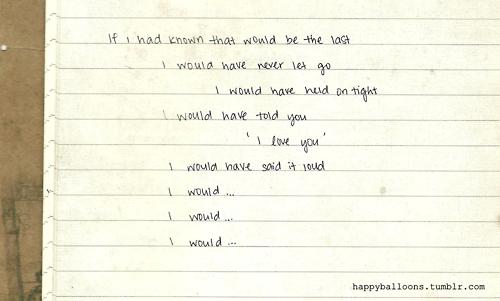 If I had known that would be the last
I would have never let go
I would have held on tight
I would have told you
'I love you'
I would have said it loud
I would...
I would...
I would...
happyballoons.tumblr.com